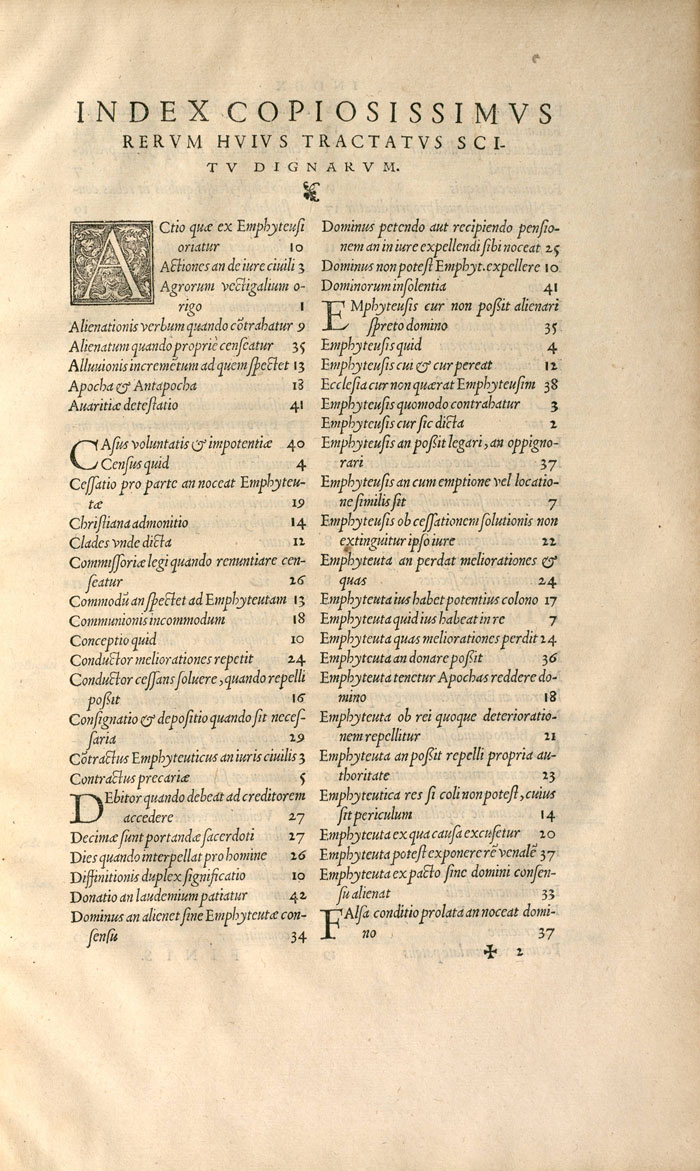 INDEX COPIOSISSIMVS
RERVM HVIVS TRACTATVS SCI-
TV DIGNARVM.
ACtio quæ ex Emphyteusi
oriatur 10
Actiones an de iure ciuili 3
Agrorum vectigalium o-
rigo 1
Alienationis verbum quando cõtrahatur 9
Alienatum quando propriè censeatur 35
Alluuionis incremẽtum ad quem spectet 13
Apocha & Antapocha 18
Auaritiæ detestatio 41
CAsus voluntatis & impotentiæ 40
Census quid 4
Cessatio pro parte an noceat Emphyteu-
tæ 19
Christiana admonitio 14
Clades vnde dicta 12
Commissoriæ legi quando renuntiare cen-
seatur 26
Commodũ an spectet ad Emphyteutam 13
Communionis incommodum 18
Conceptio quid 10
Conductor meliorationes repetit 24
Conductor cessans soluere, quando repelli
possit 16
Consignatio & depositio quando sit neces-
saria 29
Cõtractus Emphyteuticus an iuris ciuilis 3
Contractus precariæ 5
DEbitor quando debeat ad creditorem
accedere 27
Decimæ sunt portandæ sacerdoti 27
Dies quando interpellat pro homine 26
Diffinitionis duplex significatio 10
Donatio an laudemium patiatur 42
Dominus an alienet sine Emphyteutæ con-
sensu 34
Dominus petendo aut recipiendo pensio-
nem an in iure expellendi sibi noceat 25
Dominus non potest Emphyt. expellere 10
Dominorum insolentia 41
EMphyteusis cur non possit alienari
spreto domino 35
Emphyteusis quid 4
Emphyteusis cui & cur pereat 12
Ecclesia cur non quærat Emphyteusim 38
Emphyteusis quomodo contrahatur 3
Emphyteusis cur sic dicta 2
Emphyteusis an possit legari, an oppigno-
rari 37
Emphyteusis an cum emptione vel locatio-
ne similis sit 7
Emphyteusis ob cessationem solutionis non
extinguitur ipso iure 22
Emphyteuta an perdat meliorationes &
quas 24
Emphyteuta ius habet potentius colono 17
Emphyteuta quid ius habeat in re 7
Emphyteuta quas meliorationes perdit 24
Emphyteuta an donare possit 36
Emphyteuta tenetur Apochas reddere do-
mino 18
Emphyteuta ob rei quoque deterioratio-
nem repellitur 21
Emphyteuta an possit repelli propria au-
thoritate 23
Emphyteutica res si coli non potest, cuius
sit periculum 14
Emphyteuta ex qua causa excusetur 20
Emphyteuta potest exponere rẽ venalẽ 37
Emphyteuta ex pacto sine domini consen-
su alienat 33
FAlsa conditio prolata an noceat domi-
no 37
✠ 2